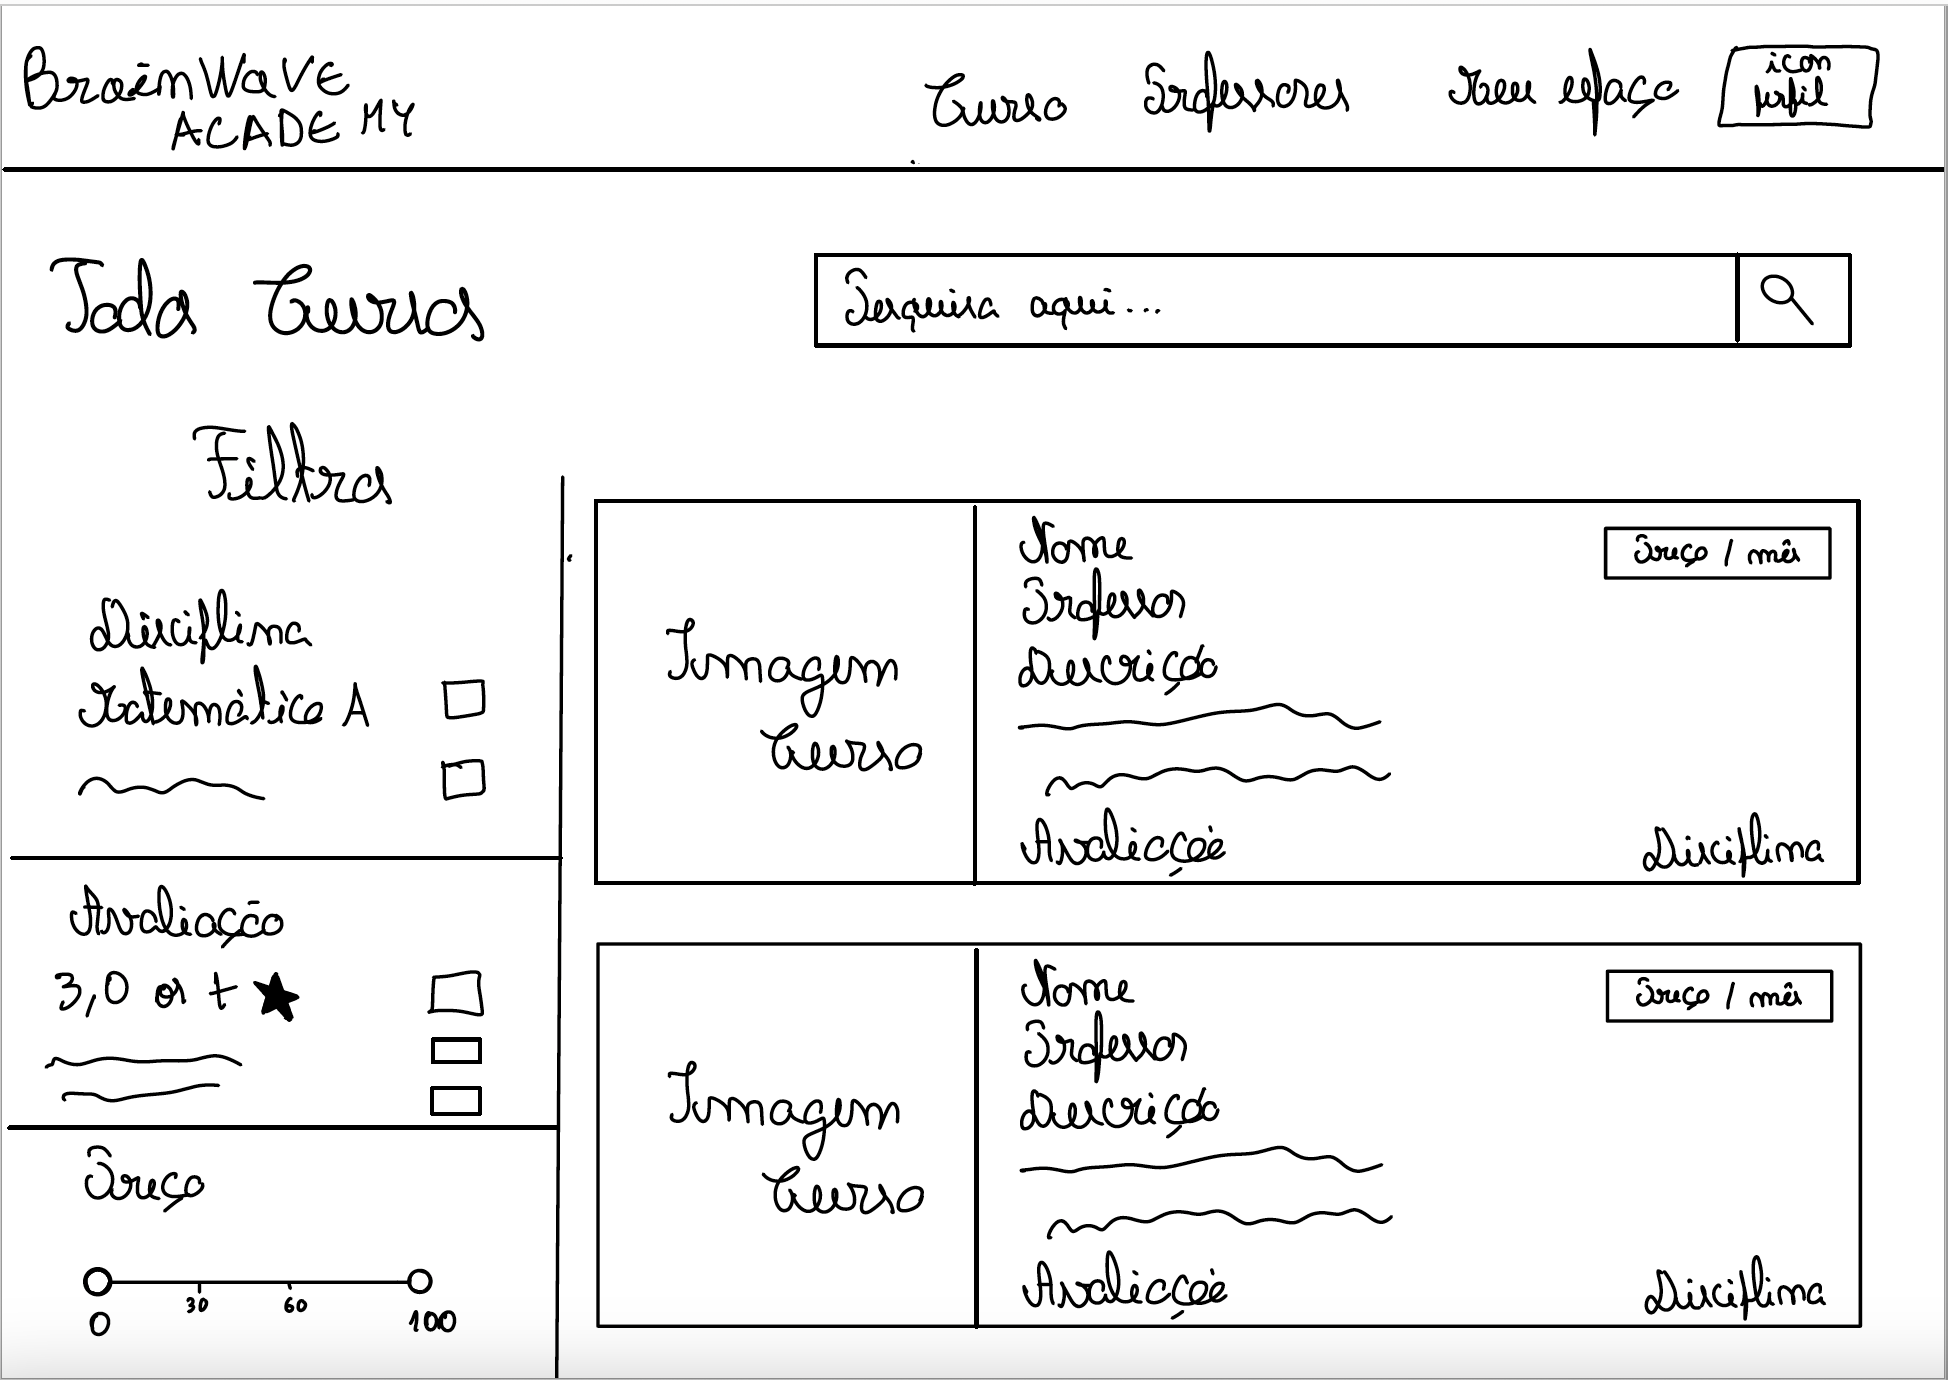 BrainWaVE
ACADEMY
Curso Professores Meu espaço icon
perfil
Todos Cursos
Pesquisa aqui...
Filtros
Disciplina
Matemática A
Avaliação
3,0 or +
Preço
0 30 60 100
Imagem
Curso
Nome
Professor
Descrição
Avaliações
Preço / mês
Disciplina
Imagem
Curso
Nome
Professor
Descrição
Avaliações
Preço / mês
Disciplina